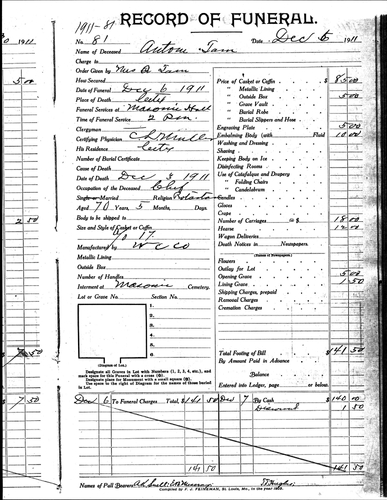 1911-81
RECORD OF FUNERAL.
No. 81 Date Dec 6 1911
Name of Deceased Antone Tam
Charge to
Order Given by Mrs A Tam
How Secured
Date of Funeral Dec 6 1911
Place of Death City
Funeral Services at Masonic Hall
Time of Funeral Service 2 P.m.
Clergyman
Certifying Physician
His Residence City
Number of Burial Certificate
Cause of Death
Date of Death Dec 3 1911
Occupation of the Deceased
Single or Married Religion
Aged 70 Years, 5 Months, Days.
Body to be shipped to
Size and Style of Casket or Coffin
17
Manufactured by W C Co
Metallic Lining
Outside Box
Number of Handles
Interment at Masonic Cemetery.
Lot or Grave No. Section No.
1.
2.
3.
4.
5.
6.
(Diagram of Lot.)
Designate all Graves in Lot with Numbers (1, 2, 3, 4, etc.), and
mark space for this Funeral with a cross
Designate place for Monument with a small square
Use space to the right of Diagram for the names of those buried
in Lot.
Price of Casket or Coffin $ 85 00
" Metallic Lining
" Outside Box 5 00
" Grave Vault
" Burial Robe
" Burial Slippers and Hose
Engraving Plate 5 00
Embalming Body (with Fluid 10 00
Washing and Dressing
Shaving
Keeping Body on Ice
Disinfecting Rooms
Use of Catafalque and Drapery
" Folding Chairs
" Candelabrum
Candles
Gloves
Crape
Number of Carriages @ $ 18 00
Hearse 12 00
Wagon Deliveries
Death Notices in Newspapers.
(Names of Newspapers)
Flowers
Outlay for Lot
Opening Grave 5 00
Lining Grave 1 50
Shipping Charges, prepaid
Removal Charges
Cremation Charges
Total Footing of Bill $ 141 50
By Amount Paid in Advance
Balance
Entered into Ledger, page or below.
Dec 6 To Funeral Charges Total, $ 141 50 Dec 7 By Cash $ 140 00
Discount 1 50
141 50 141 50
Names of Pall Bearers
Compiled by F. J. FEINEMAN, St. Louis, Mo.
1911
5 00
2 50
7 50